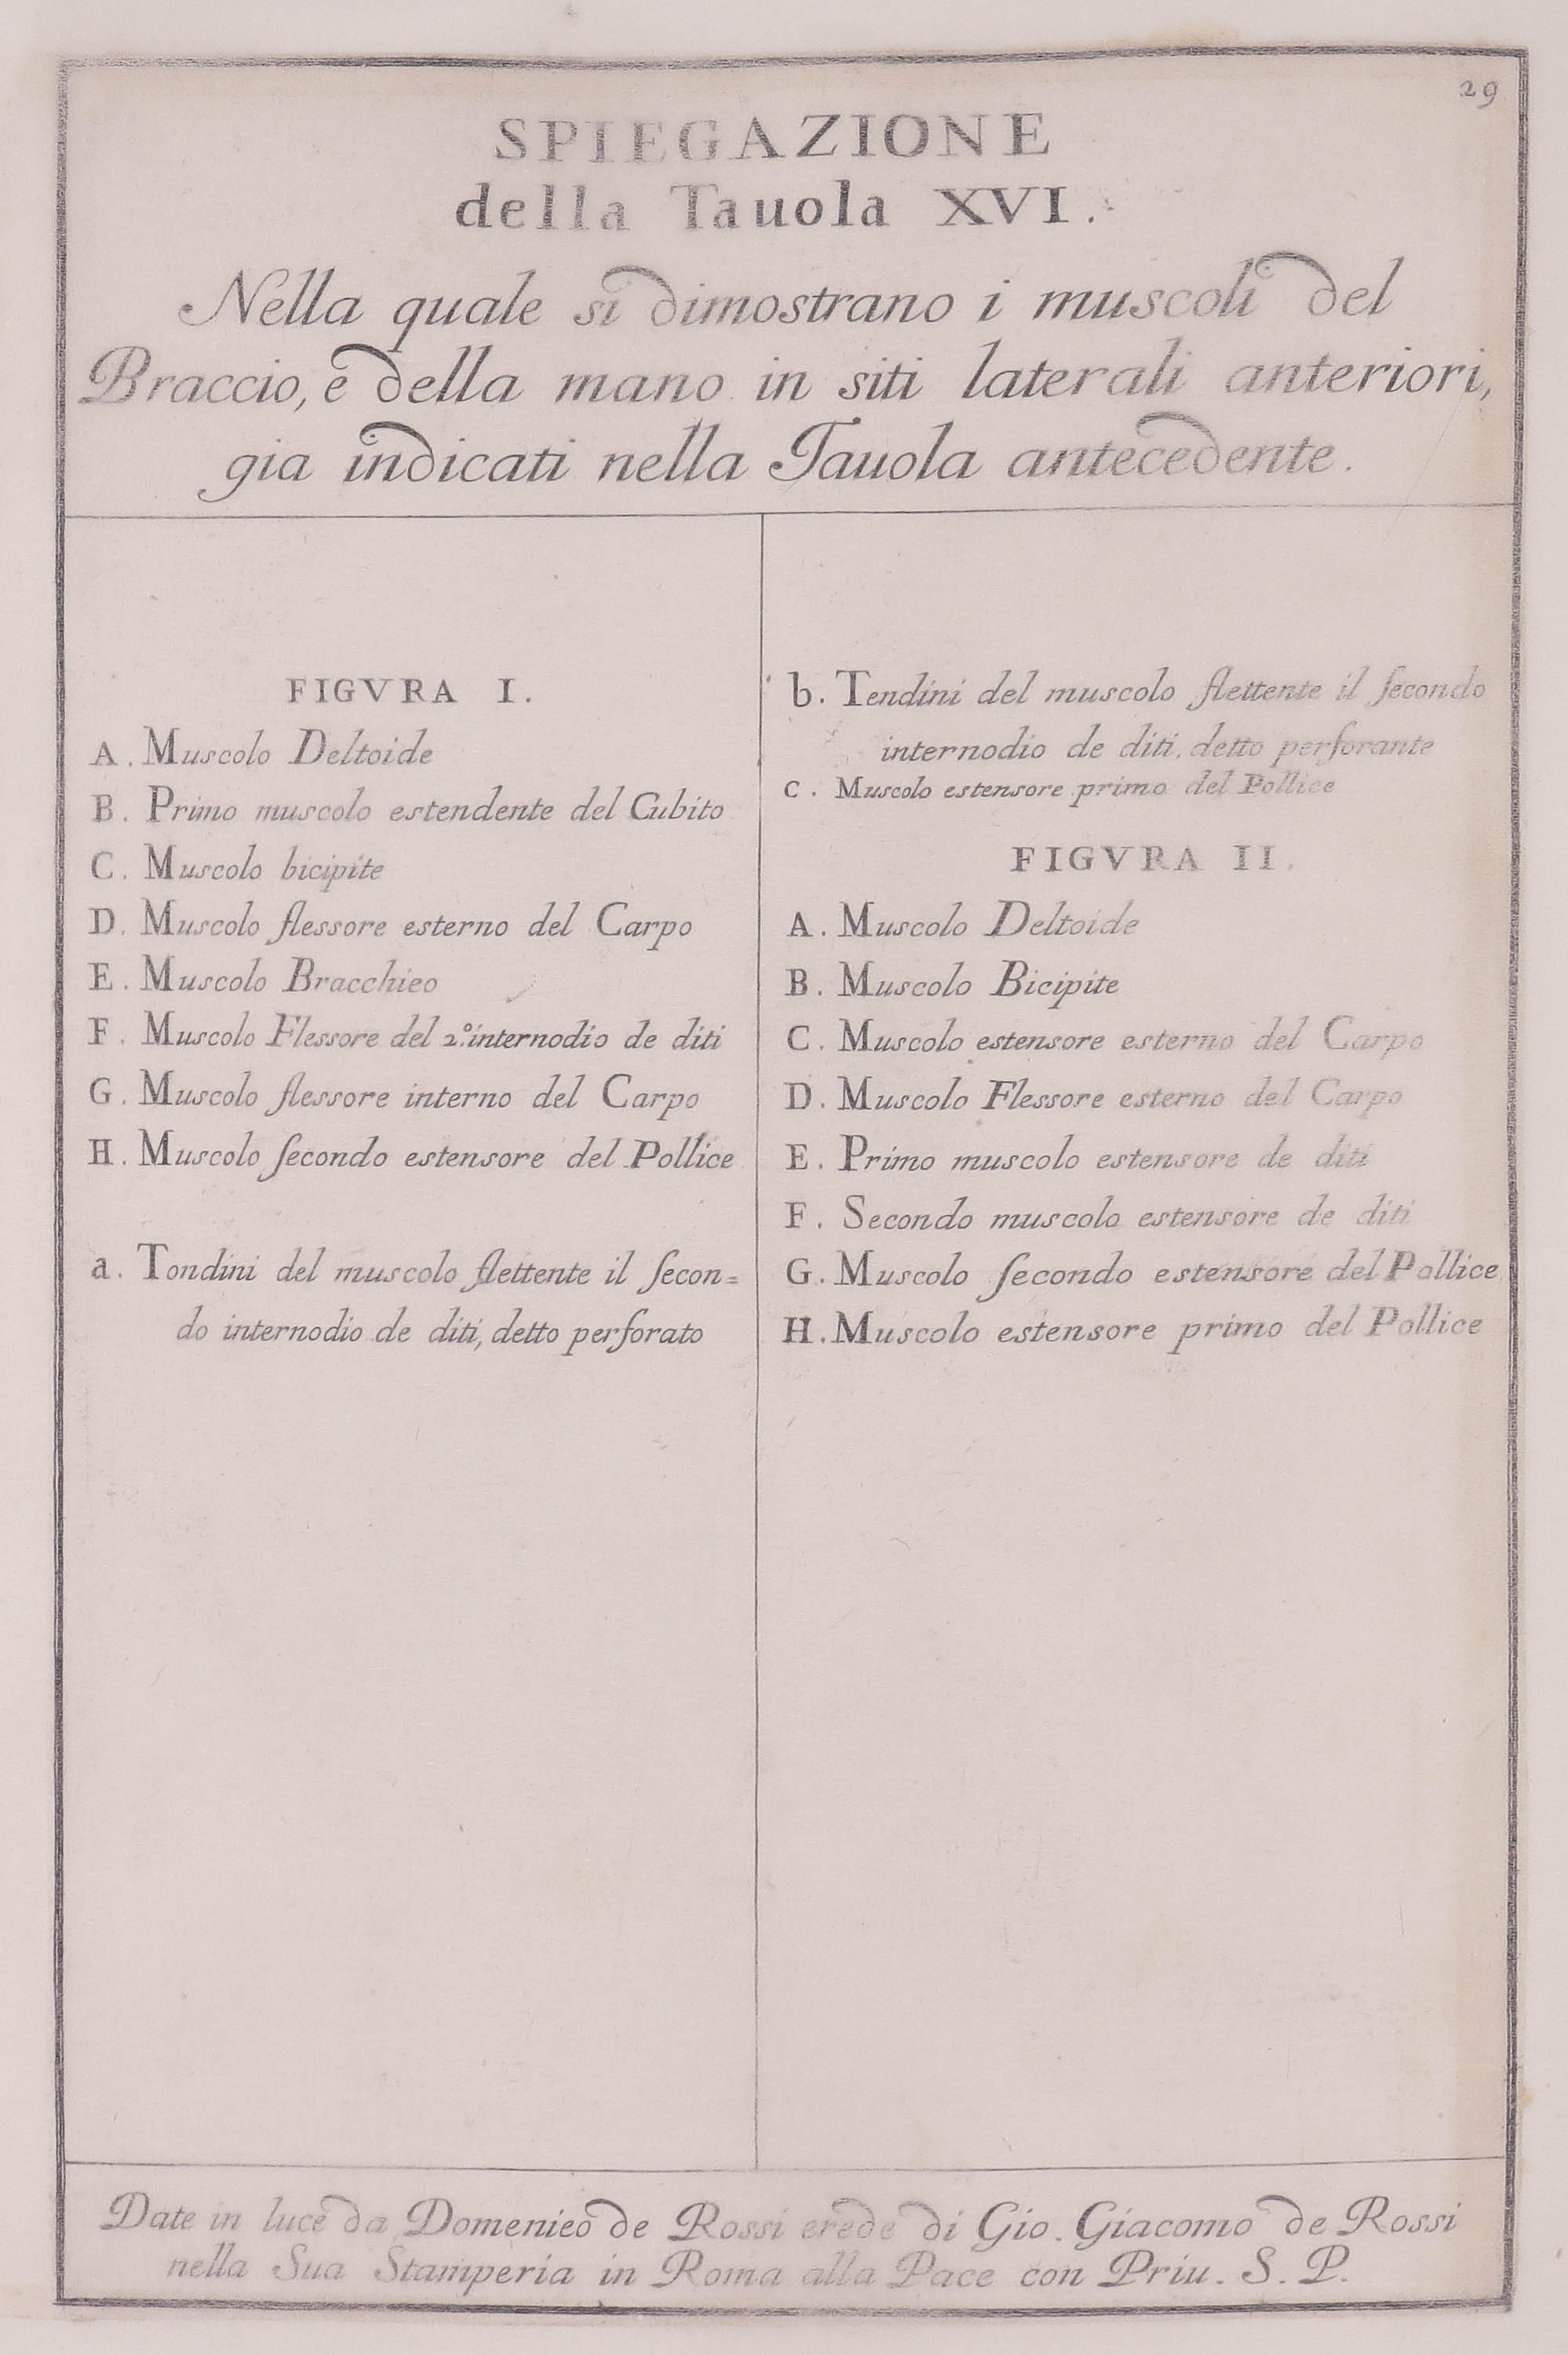 29
SPIEGAZIONE
della Tauola XVI.
Nella quale si dimostrano i muscoli del
Braccio, e della mano in siti laterali anteriori,
gia indicati nella Tauola antecedente.
FIGVRA I.
A. Muscolo Deltoide
B. Primo muscolo estendente del Cubito
C. Muscolo bicipite
D. Muscolo flessore esterno del Carpo
E. Muscolo Bracchieo
F. Muscolo Flessore del 2.º internodio de diti
G. Muscolo flessore interno del Carpo
H. Muscolo ſecondo estensore del Pollice
a. Tondini del muscolo flettente il ſecon=
do internodio de diti, detto perforato
b. Tendini del muscolo flettente il ſecondo
internodio de diti, detto perforante
c. Muscolo estensore primo del Pollice
FIGVRA II.
A. Muscolo Deltoide
B. Muscolo Bicipite
C. Muscolo estensore esterno del Carpo
D. Muscolo Flessore esterno del Carpo
E. Primo muscolo estensore de diti
F. Secondo muscolo estensore de diti
G. Muscolo ſecondo estensore del Pollice
H. Muscolo estensore primo del Pollice
Date in luce da Domenico de Rossi erede di Gio. Giacomo de Rossi
nella Sua Stamperia in Roma alla Pace con Priu. S. P.